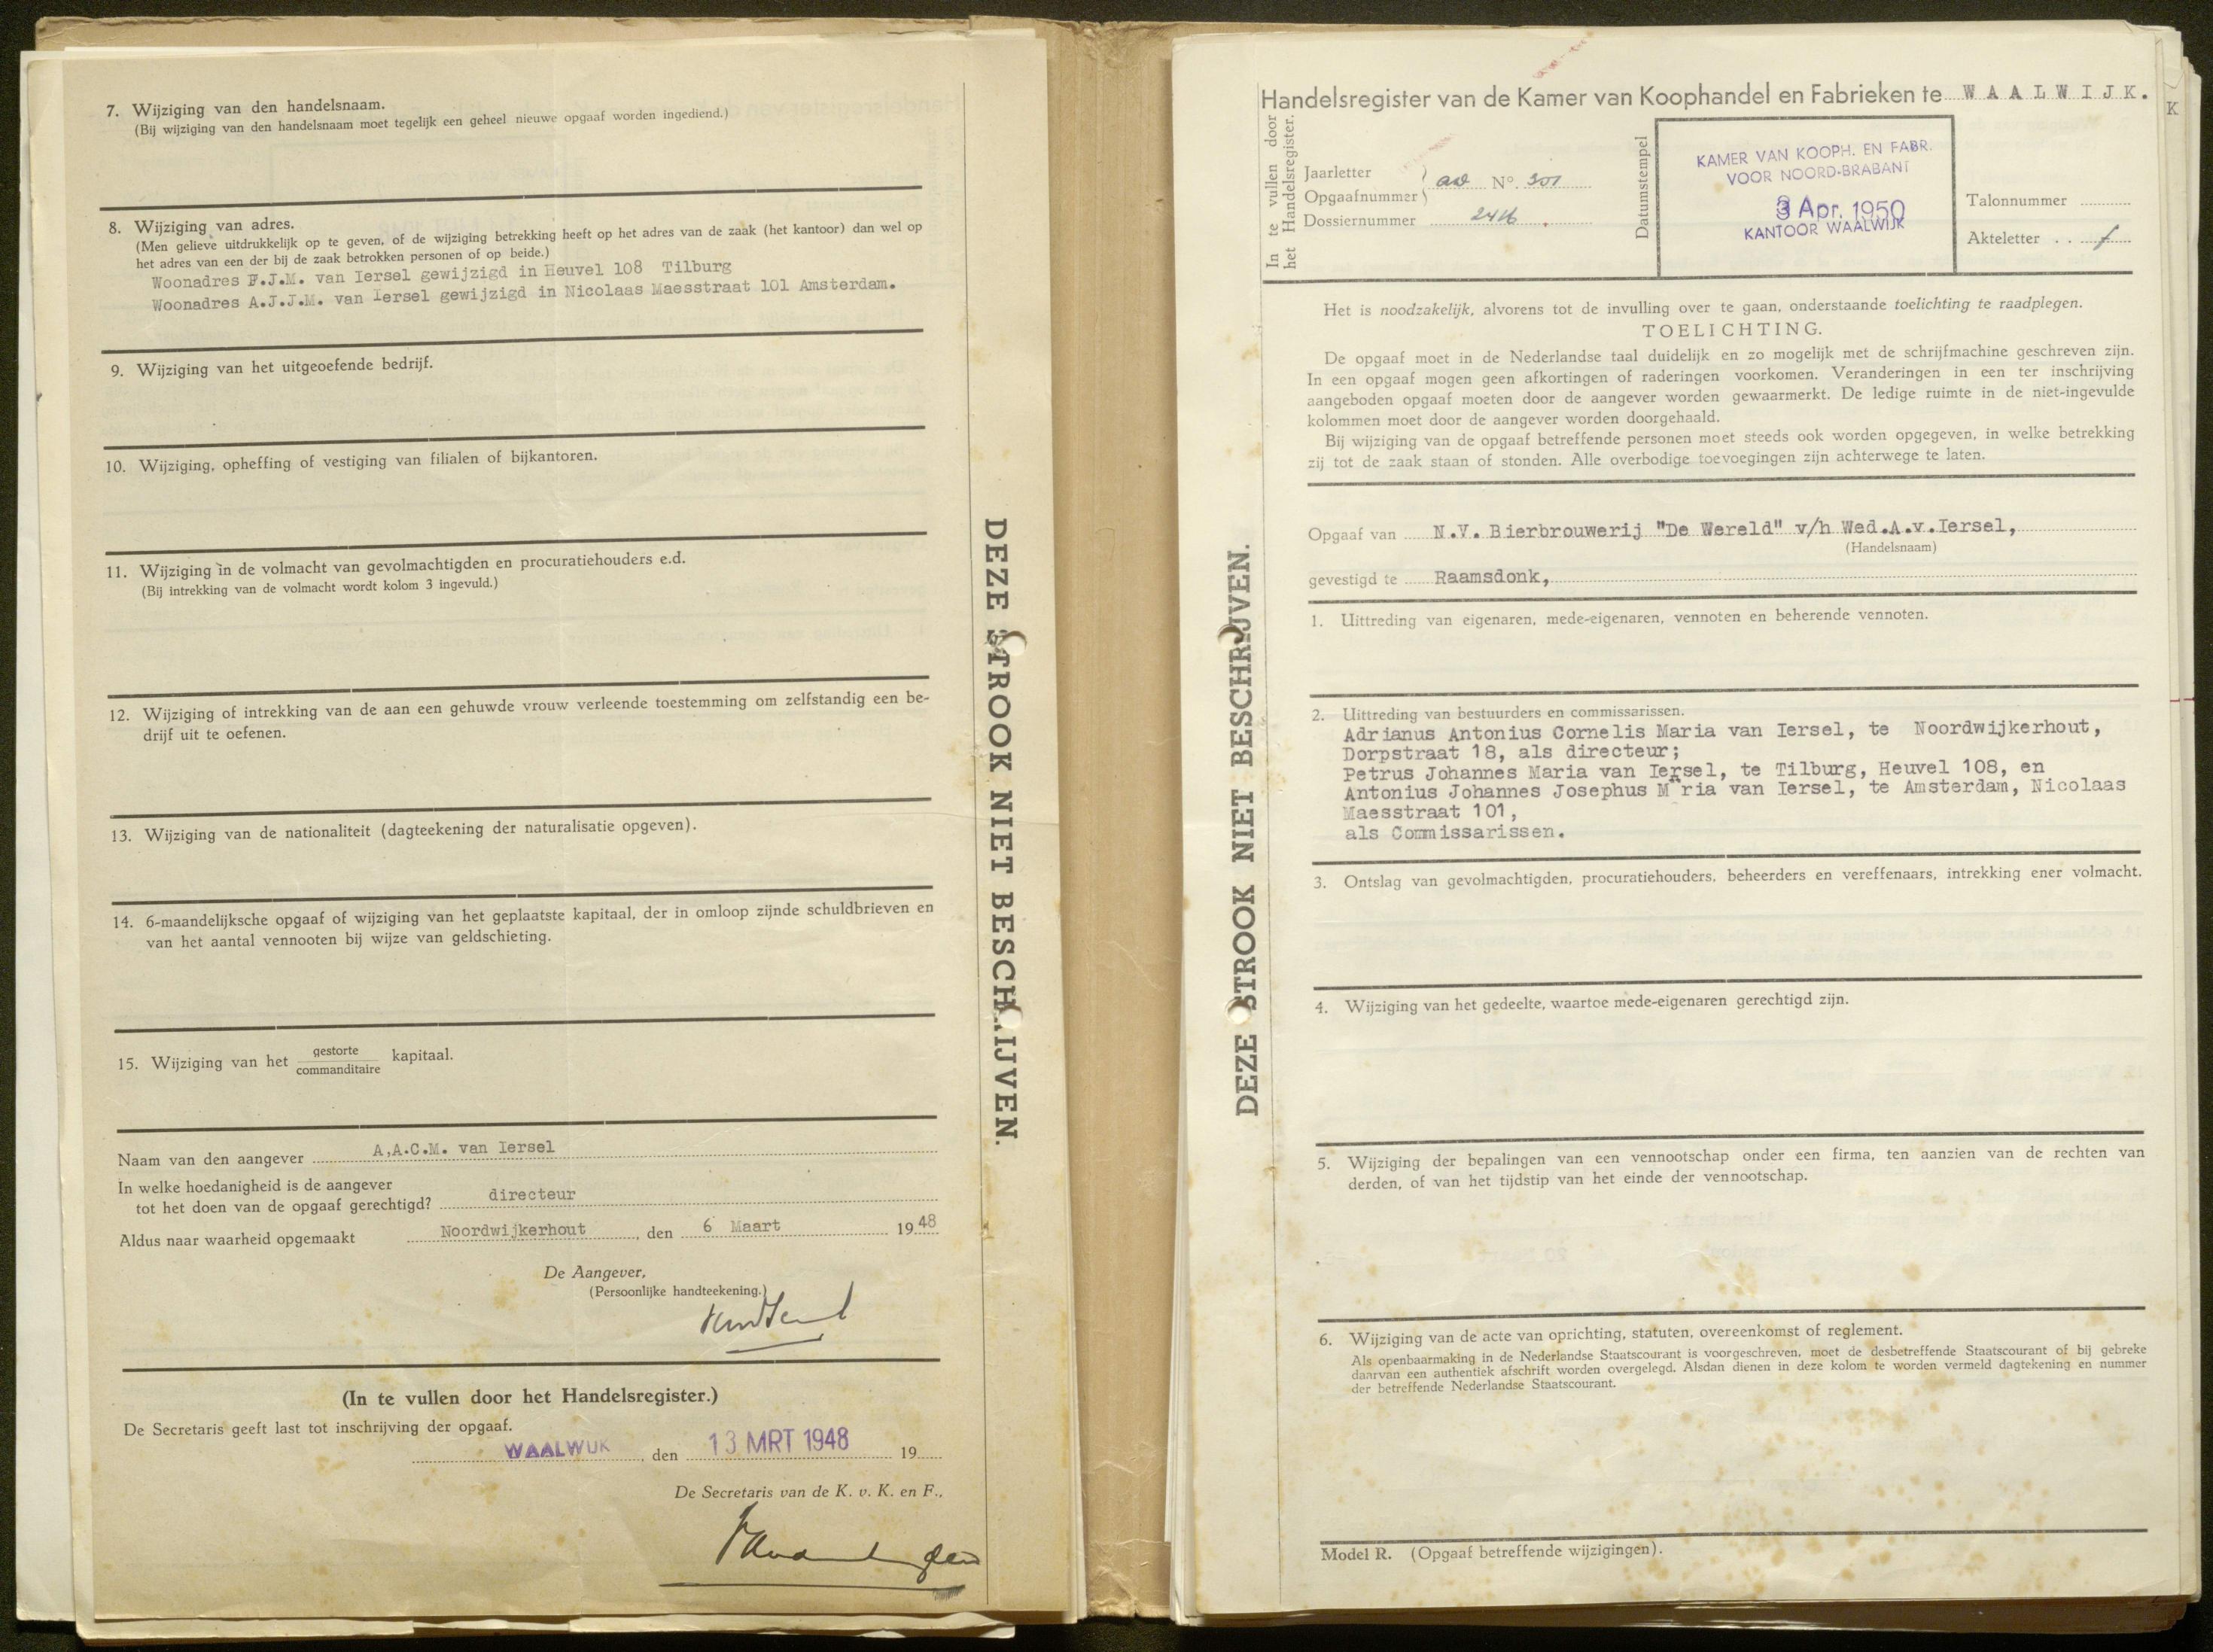 7. Wijziging van den handelsnaam.
(Bij wijziging van den handelsnaam moet tegelijk een geheel nieuwe opgaaf worden ingediend.)
8. Wijziging van adres.
(Men gelieve uitdrukkelijk op te geven, of de wijziging betrekking heeft op het adres van de zaak (het kantoor) dan wel op
het adres van een der bij de zaak betrokken personen of op beide.)
Woonadres F.J.M. van Iersel gewijzigd in Heuvel 108 Tilburg
Woonadres A.J.J.M. van Iersel gewijzigd in Nicolaas Maesstraat 101 Amsterdam.
9. Wijziging van het uitgeoefende bedrijf.
10. Wijziging, opheffing of vestiging van filialen of bijkantoren.
11. Wijziging in de volmacht van gevolmachtigden en procuratiehouders e.d.
(Bij intrekking van de volmacht wordt kolom 3 ingevuld.)
12. Wijziging of intrekking van de aan een gehuwde vrouw verleende toestemming om zelfstandig een be-
drijf uit te oefenen.
13. Wijziging van de nationaliteit (dagteekening der naturalisatie opgeven).
14. 6-maandelijksche opgaaf of wijziging van het geplaatste kapitaal, der in omloop zijnde schuldbrieven en
van het aantal vennooten bij wijze van geldschieting.
15. Wijziging van het gestorte commanditaire kapitaal.
Naam van den aangever A,A.C.M. van Iersel
In welke hoedanigheid is de aangever
tot het doen van de opgaaf gerechtigd? directeur
Aldus naar waarheid opgemaakt Noordwijkerhout, den 6 Maart 1948
De Aangever,
(Persoonlijke handteekening.)
(In te vullen door het Handelsregister.)
De Secretaris geeft last tot inschrijving der opgaaf.
WAALWIJK, den 13 MRT 1948 19
De Secretaris van de K. v. K. en F.,
DEZE STROOK NIET BESCHRIJVEN.
DEZE STROOK NIET BESCHRIJVEN.
Handelsregister van de Kamer van Koophandel en Fabrieken te WAALWIJK.
K
In te vullen door
het Handelsregister.
Jaarletter
Opgaafnummer
No 301
Dossiernummer 2416
Datumstempel
KAMER VAN KOOPH. EN FABR.
VOOR NOORD-BRABANT
3 Apr. 1950
KANTOOR WAALWIJK
Talonnummer
Akteletter . . f
Het is noodzakelijk, alvorens tot de invulling over te gaan, onderstaande toelichting te raadplegen.
TOELICHTING.
De opgaaf moet in de Nederlandse taal duidelijk en zo mogelijk met de schrijfmachine geschreven zijn.
In een opgaaf mogen geen afkortingen of raderingen voorkomen. Veranderingen in een ter inschrijving
aangeboden opgaaf moeten door de aangever worden gewaarmerkt. De ledige ruimte in de niet-ingevulde
kolommen moet door de aangever worden doorgehaald.
Bij wijziging van de opgaaf betreffende personen moet steeds ook worden opgegeven, in welke betrekking
zij tot de zaak staan of stonden. Alle overbodige toevoegingen zijn achterwege te laten.
Opgaaf van N.V. Bierbrouwerij "De Wereld" v/h Wed.A.v.Iersel,
(Handelsnaam)
gevestigd te Raamsdonk,
1. Uittreding van eigenaren, mede-eigenaren, vennoten en beherende vennoten.
2. Uittreding van bestuurders en commissarissen.
Adrianus Antonius Cornelis Maria van Iersel, te Noordwijkerhout,
Dorpstraat 18, als directeur;
Petrus Johannes Maria van Iersel, te Tilburg, Heuvel 108, en
Antonius Johannes Josephus Maria van Iersel, te Amsterdam, Nicolaas
Maesstraat 101,
als Commissarissen.
3. Ontslag van gevolmachtigden, procuratiehouders, beheerders en vereffenaars, intrekking ener volmacht.
4. Wijziging van het gedeelte, waartoe mede-eigenaren gerechtigd zijn.
5. Wijziging der bepalingen van een vennootschap onder een firma, ten aanzien van de rechten van
derden, of van het tijdstip van het einde der vennootschap.
6. Wijziging van de acte van oprichting, statuten, overeenkomst of reglement.
Als openbaarmaking in de Nederlandse Staatscourant is voorgeschreven, moet de desbetreffende Staatscourant of bij gebreke
daarvan een authentiek afschrift worden overgelegd. Alsdan dienen in deze kolom te worden vermeld dagtekening en nummer
der betreffende Nederlandse Staatscourant.
Model R. (Opgaaf betreffende wijzigingen).